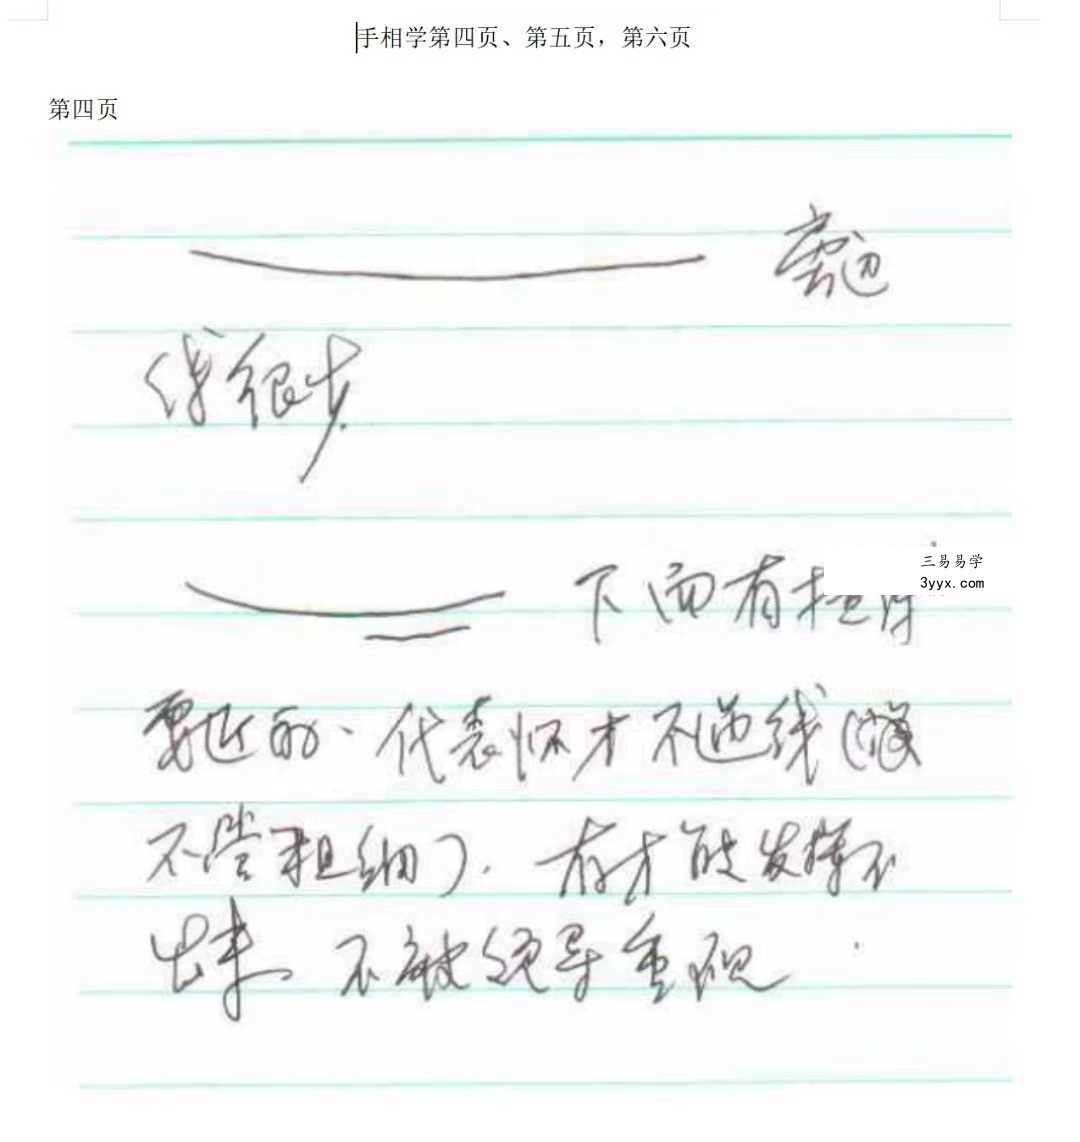 手相学第四页、第五页，第六页
第四页
线很少
三易易学
3yyx.com
下面有
要近的、代表怀才不遇线（
不管粗细）．有才能发挥不
出来 不被领导重视